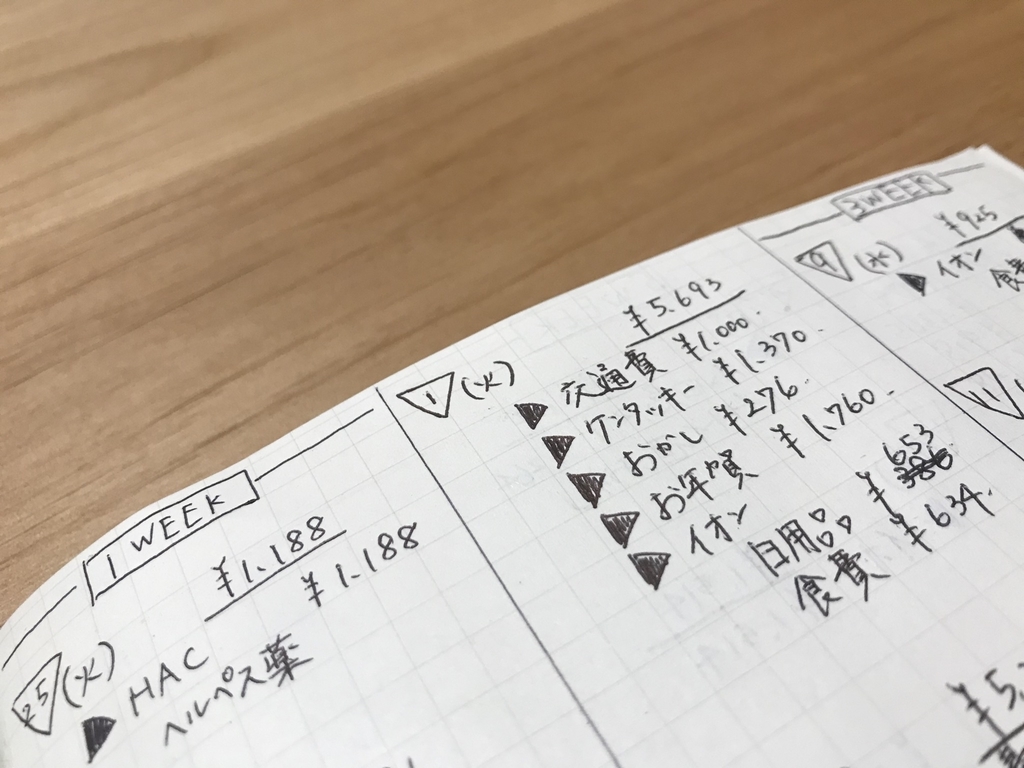 1 WEEK
25 (火) ¥1.188
HAC ¥1.188
ヘルペス薬
1 (火) ¥5.693
交通費 ¥1.000
ケンタッキー ¥1.370
おかし ¥276
お年賀 ¥1.760
イオン
日用品 ¥653
食費 ¥634
¥5.
3WEEK
9 (水) ¥925
イオン
食費
11